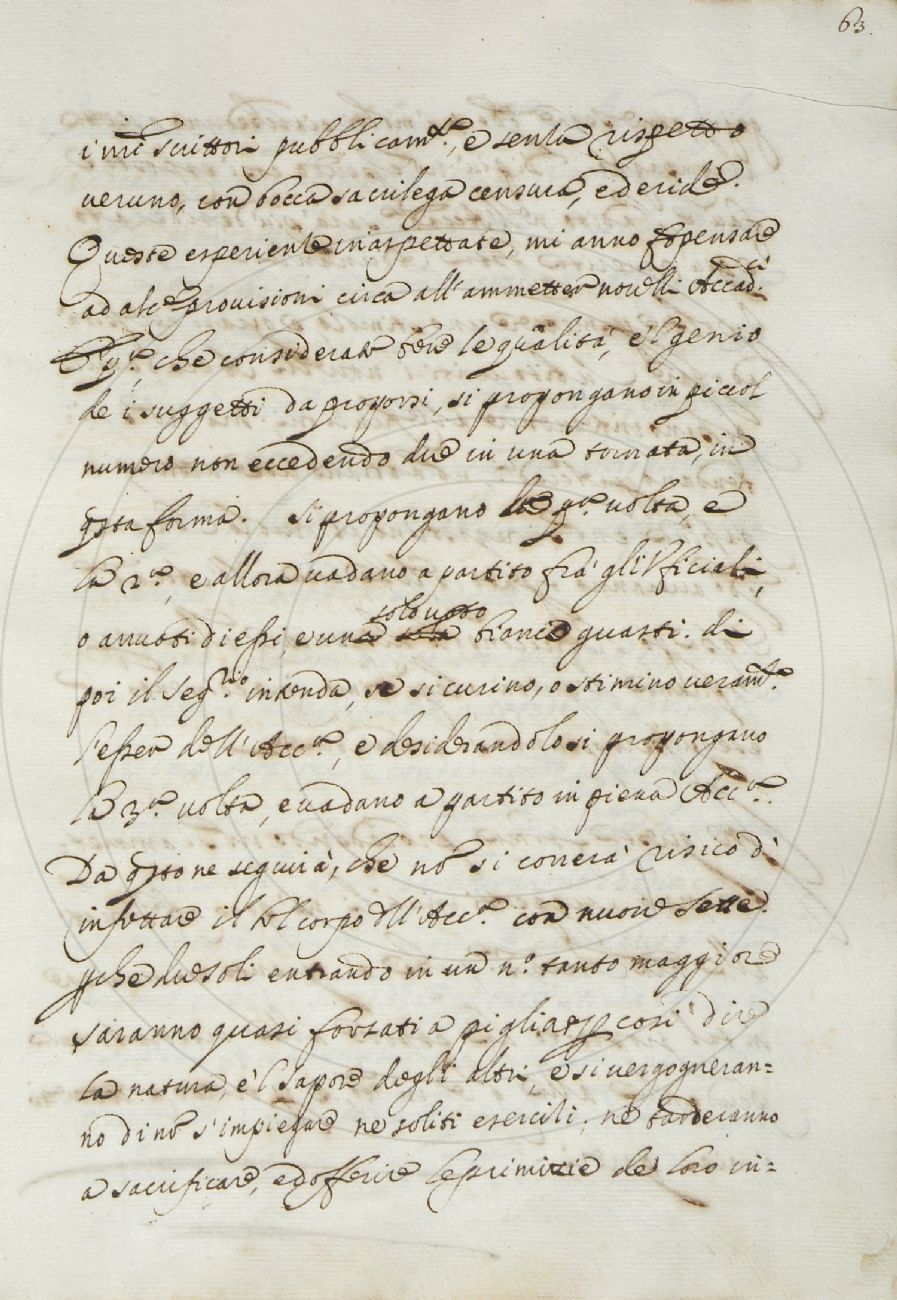 63.
i nri scrittori pubblicamte, e senza rispetto
veruno, con bocca sacrilega censura, e deride.
Queste esperienze inaspettate, mi anno fo pensare
ad alce provisioni circa all'ammetter novelli Accadci
che considerate bene le qualità, e 'l genio
de i suggetti da proporsi, si propongano in piccol
numero non eccedendo due in una tornata, in
qsta forma. Si propongano la pa volta, e
la 2a, e allora vadano a partito fra gli Ufficiali,
o annoti di essi, e una solo voto bianco guasti. di
poi il Segrio intenda, se si curino, o stimino veramte
l'esser dell'Acca, e desiderandolo si propongano
la 3a volta, e vadano a partito in piena Acca.
Da qsto ne seguirà, che no si correrà risico di
infettare il bel corpo dll'Acca con nuove sette.
pche due soli entrando in un no tanto maggiore
saranno quasi forzati a pigliar p cosi dire
la natura, e 'l sapore degli altri, e si vergogneran=
no di no s'impiegare ne soliti esercizi, ne tarderanno
a sacrificare, ed offerire le primizie de loro in=